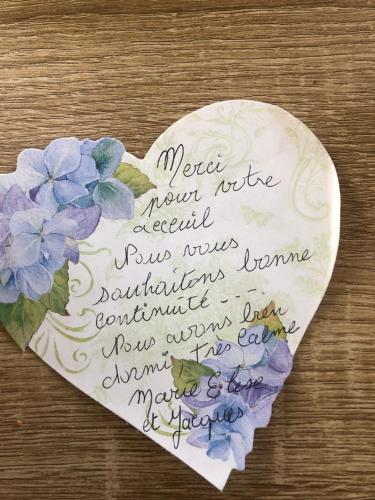 Merci
pour votre
acceuil
Nous vous
souhaitons bonne
continuité - - -
Nous avons bien
dormi très Calme
Marie Elise
et Jacques